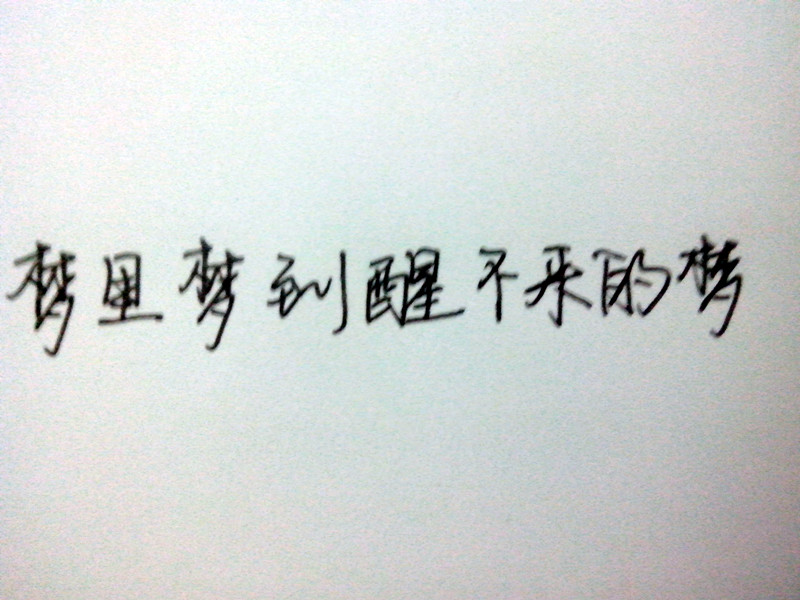 梦里梦到醒不来的梦